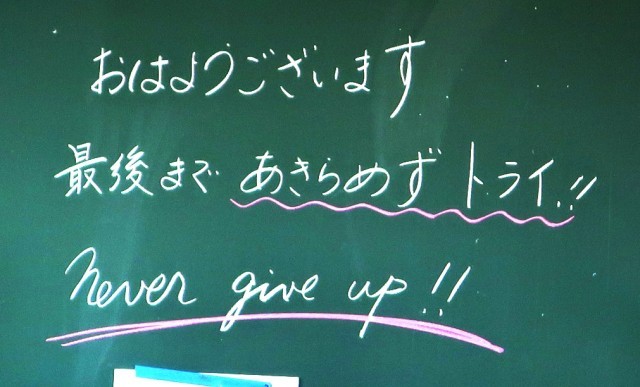 おはようございます
最後まで あきらめず トライ!!
never give up!!